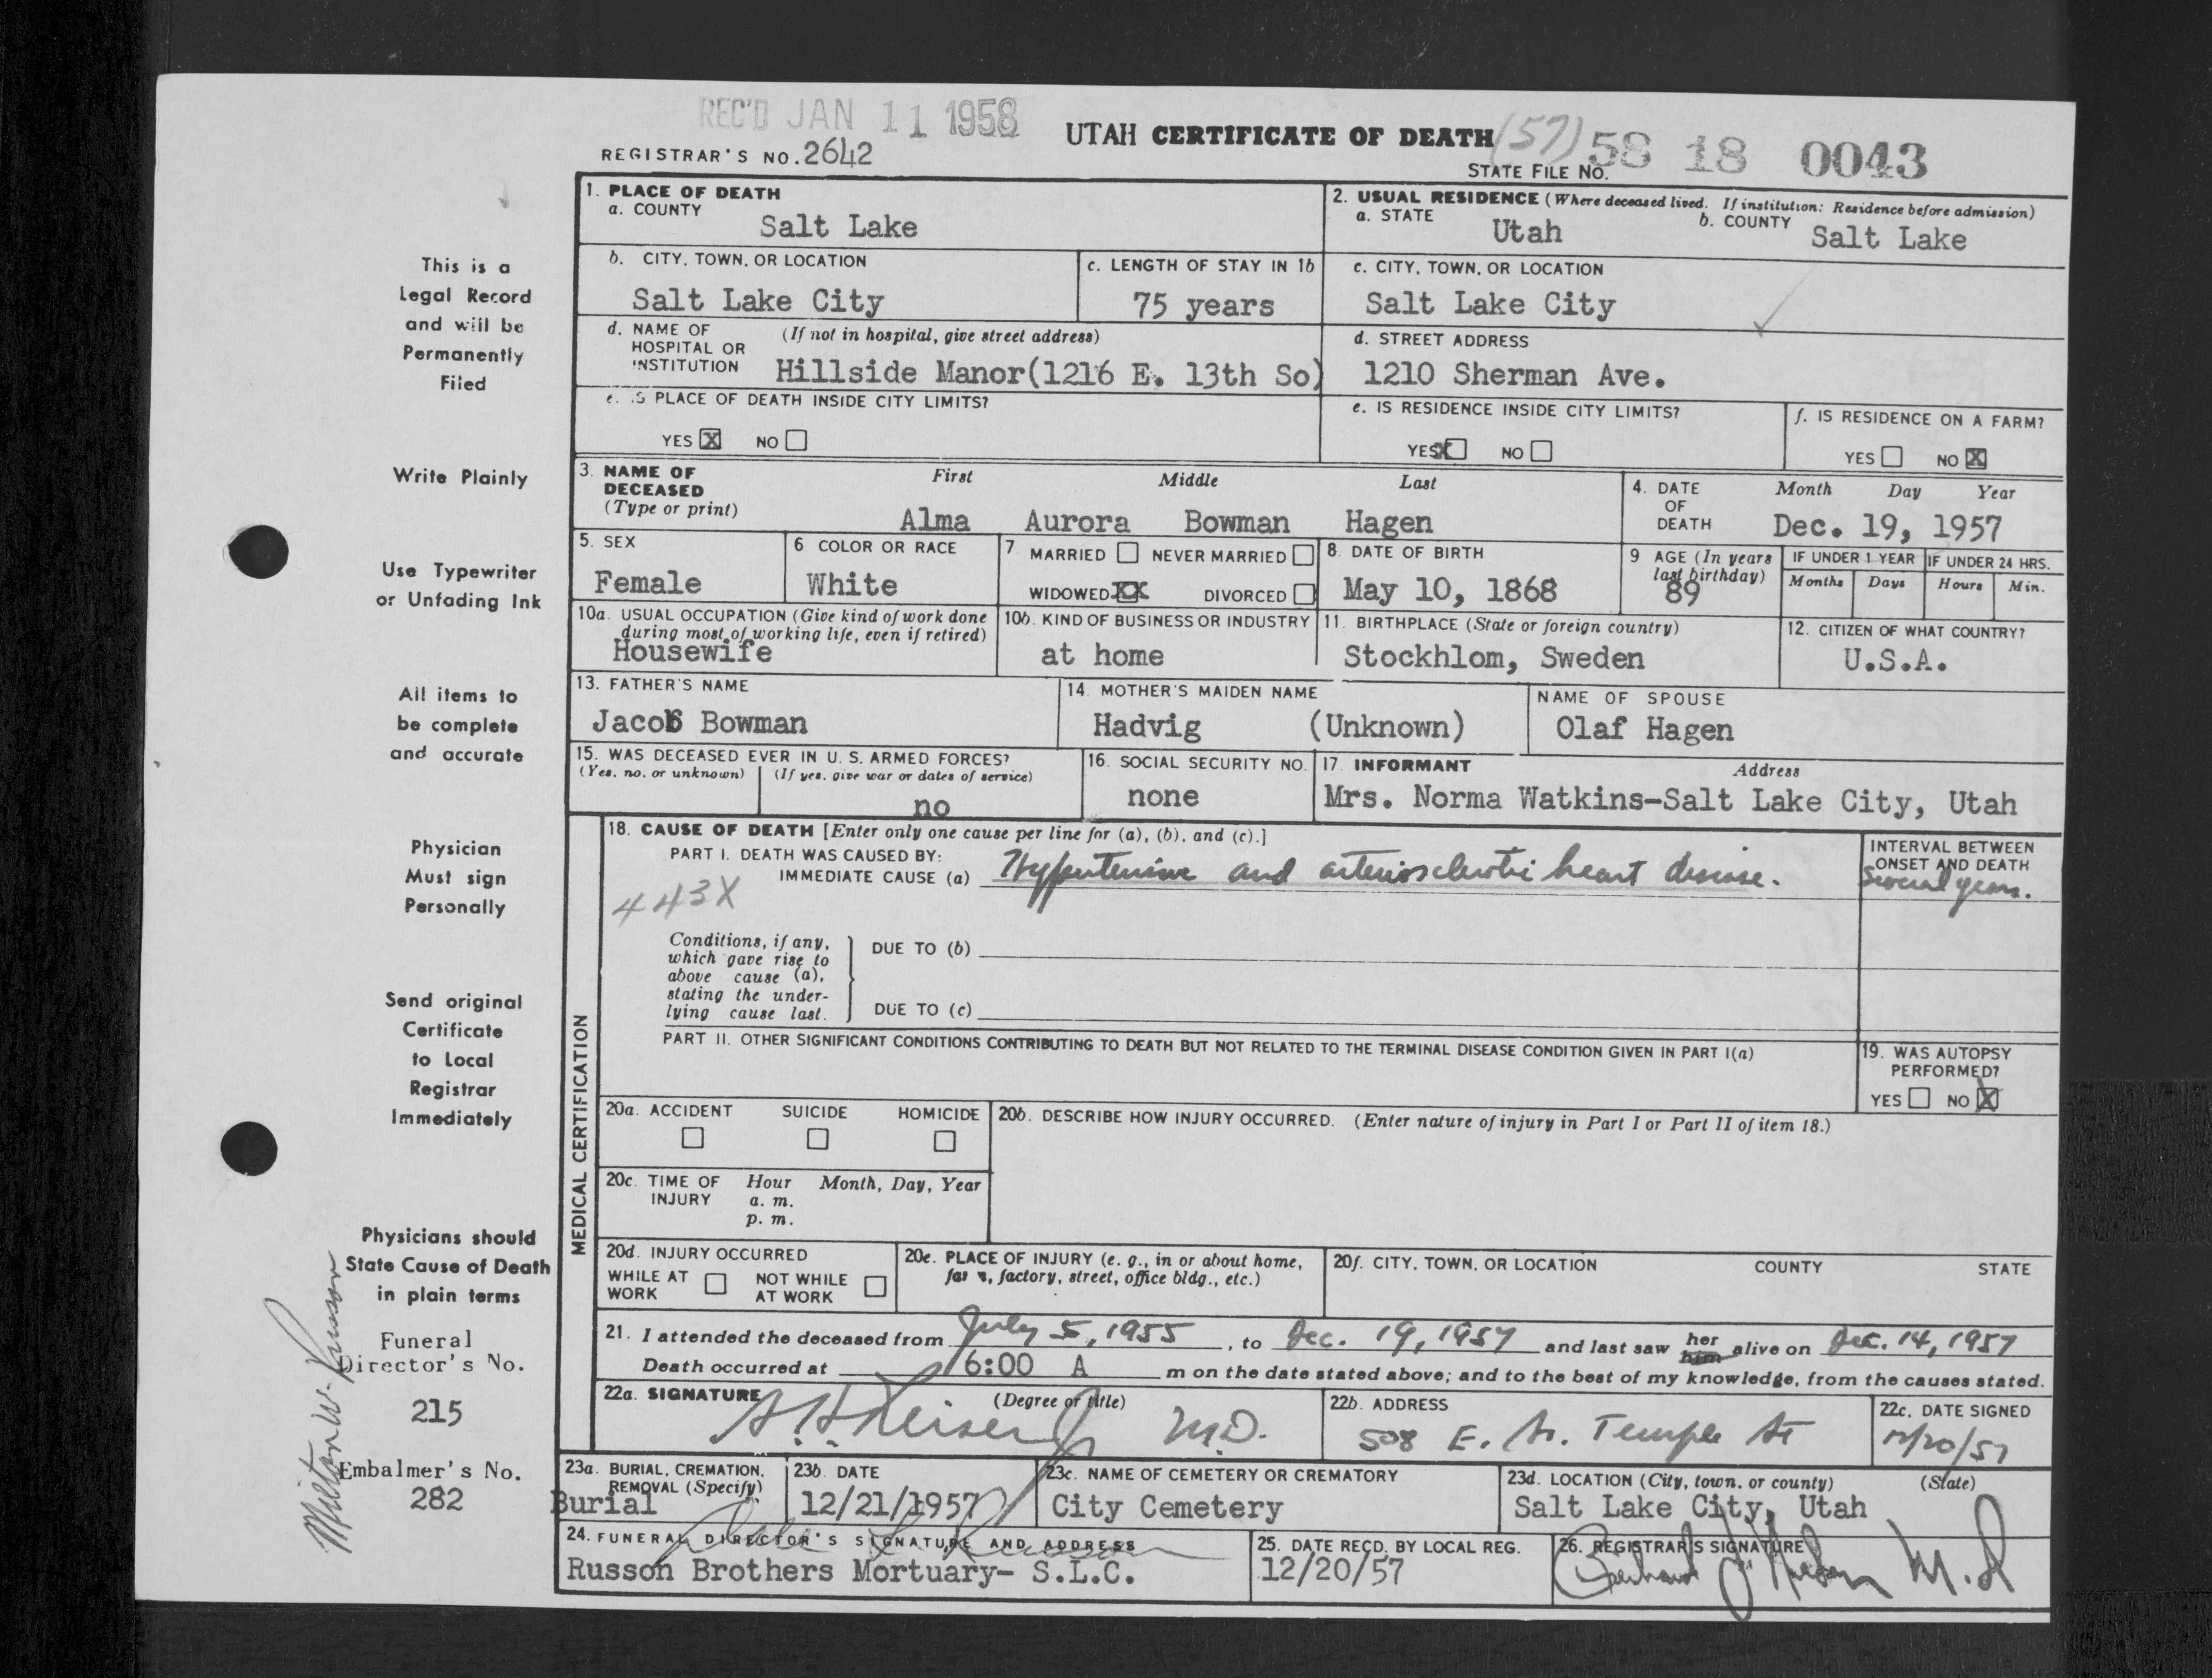 REC'D JAN 11 1958
UTAH CERTIFICATE OF DEATH (57) 58 18 0043
REGISTRAR'S NO. 2642
STATE FILE NO.
1. PLACE OF DEATH
a. COUNTY
Salt Lake
2. USUAL RESIDENCE (Where deceased lived. If institution: Residence before admission)
a. STATE
Utah
b. COUNTY
Salt Lake
b. CITY, TOWN, OR LOCATION
Salt Lake City
c. LENGTH OF STAY IN 1b
75 years
c. CITY, TOWN, OR LOCATION
Salt Lake City
d. NAME OF HOSPITAL OR INSTITUTION
(If not in hospital, give street address)
Hillside Manor(1216 E. 13th So)
d. STREET ADDRESS
1210 Sherman Ave.
e. IS PLACE OF DEATH INSIDE CITY LIMITS?
YES X NO
e. IS RESIDENCE INSIDE CITY LIMITS?
YES X NO
f. IS RESIDENCE ON A FARM?
YES NO X
3. NAME OF DECEASED
(Type or print)
First Middle Last
Alma Aurora Bowman Hagen
4. DATE OF DEATH
Month Day Year
Dec. 19, 1957
5. SEX
Female
6 COLOR OR RACE
White
7. MARRIED NEVER MARRIED
WIDOWED XX DIVORCED
8. DATE OF BIRTH
May 10, 1868
9 AGE (In years last birthday)
89
IF UNDER 1 YEAR
Months Days
IF UNDER 24 HRS.
Hours Min.
10a. USUAL OCCUPATION (Give kind of work done during most of working life, even if retired)
Housewife
10b. KIND OF BUSINESS OR INDUSTRY
at home
11. BIRTHPLACE (State or foreign country)
Stockhlom, Sweden
12. CITIZEN OF WHAT COUNTRY?
U.S.A.
13. FATHER'S NAME
Jacob Bowman
14. MOTHER'S MAIDEN NAME
Hadvig (Unknown)
NAME OF SPOUSE
Olaf Hagen
15. WAS DECEASED EVER IN U. S. ARMED FORCES?
(Yes, no, or unknown) (If yes, give war or dates of service)
no
16. SOCIAL SECURITY NO.
none
17. INFORMANT Address
Mrs. Norma Watkins-Salt Lake City, Utah
MEDICAL CERTIFICATION
18. CAUSE OF DEATH [Enter only one cause per line for (a), (b), and (c).]
PART I. DEATH WAS CAUSED BY:
IMMEDIATE CAUSE (a) Hypertensive and arteriosclerotic heart disease.
443X
INTERVAL BETWEEN ONSET AND DEATH
Several years.
Conditions, if any, which gave rise to above cause (a), stating the underlying cause last.
DUE TO (b)
DUE TO (c)
PART II. OTHER SIGNIFICANT CONDITIONS CONTRIBUTING TO DEATH BUT NOT RELATED TO THE TERMINAL DISEASE CONDITION GIVEN IN PART I(a)
19. WAS AUTOPSY PERFORMED?
YES NO X
20a. ACCIDENT SUICIDE HOMICIDE
20b. DESCRIBE HOW INJURY OCCURRED. (Enter nature of injury in Part I or Part II of item 18.)
20c. TIME OF INJURY
Hour Month, Day, Year
a. m.
p. m.
20d. INJURY OCCURRED
WHILE AT WORK NOT WHILE AT WORK
20e. PLACE OF INJURY (e. g., in or about home, farm, factory, street, office bldg., etc.)
20f. CITY, TOWN, OR LOCATION COUNTY STATE
21. I attended the deceased from July 5, 1955, to Dec. 19, 1957 and last saw her him alive on Dec. 14, 1957
Death occurred at 6:00 A m on the date stated above; and to the best of my knowledge, from the causes stated.
22a. SIGNATURE (Degree or title)
M.D.
22b. ADDRESS
508 E. So. Temple St
22c. DATE SIGNED
12/20/57
23a. BURIAL, CREMATION, REMOVAL (Specify)
Burial
23b. DATE
12/21/1957
23c. NAME OF CEMETERY OR CREMATORY
City Cemetery
23d. LOCATION (City, town, or county) (State)
Salt Lake City, Utah
24. FUNERAL DIRECTOR'S SIGNATURE AND ADDRESS
Russon Brothers Mortuary- S.L.C.
25. DATE RECD. BY LOCAL REG.
12/20/57
26. REGISTRAR'S SIGNATURE
M.D
This is a
Legal Record
and will be
Permanently
Filed
Write Plainly
Use Typewriter
or Unfading Ink
All items to
be complete
and accurate
Physician
Must sign
Personally
Send original
Certificate
to Local
Registrar
Immediately
Physicians should
State Cause of Death
in plain terms
Funeral
Director's No.
215
Embalmer's No.
282
Milton W. Russon